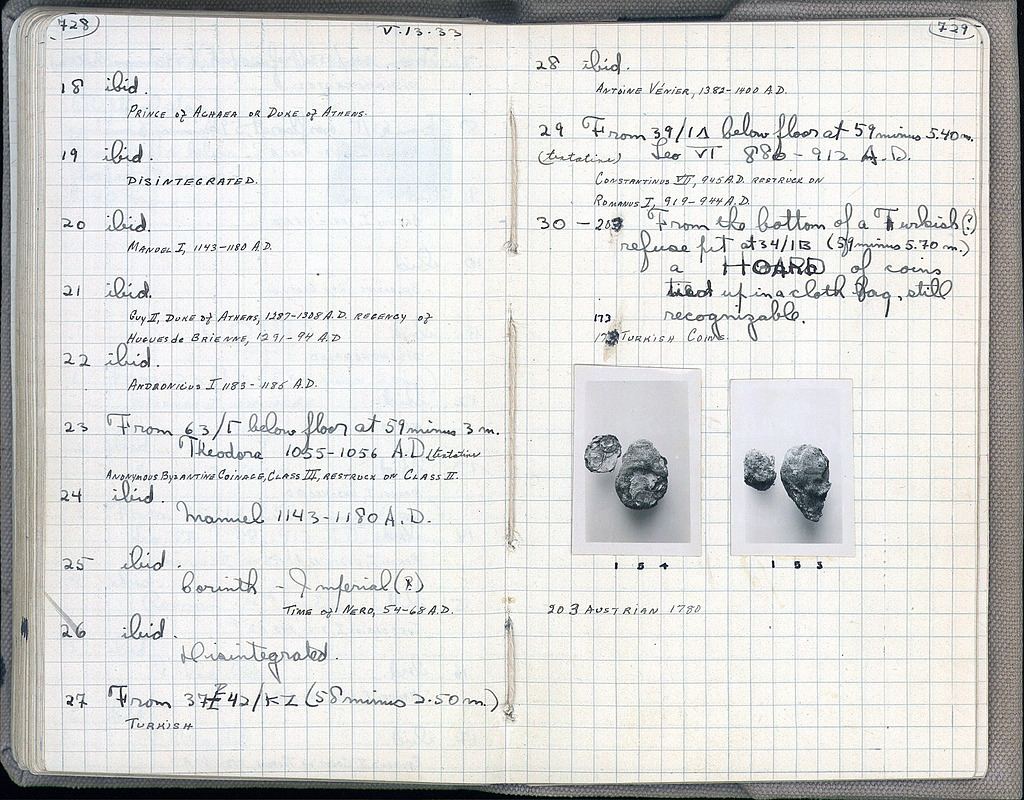 728
V.13.33
18 ibid.
PRINCE of ACHAEA OR DUKE of ATHENS.
19 ibid.
DISINTEGRATED.
20 ibid.
MANUEL I, 1143-1180 A.D.
21 ibid.
GUY II, DUKE of ATHENS, 1287-1308 A.D. REGENCY of
HUGUES de BRIENNE, 1291-94 A.D
22 ibid.
ANDRONICUS I 1183-1185 A.D.
23 From 63/Γ below floor at 59 minus 3 m.
Theodora 1055-1056 A.D. (tentative
ANONYMOUS BYZANTINE COINAGE, CLASS III, RESTRUCK ON CLASS II.
24 ibid.
Manuel 1143-1180 A.D.
25 ibid.
Corinth - Imperial (?)
TIME of NERO, 54-68 A.D.
26 ibid.
Disintegrated.
27 From 37 42/KZ (58 minus 2.50 m.)
TURKISH
729
28 ibid.
ANTOINE VÉNIER, 1382-1400 A.D.
29 From 39/ΙΔ below floor at 59 minus 5.40 m.
(tentative) Leo VI 886-912 A.D.
CONSTANTINUS VII, 945 A.D. RESTRUCK ON
ROMANUS I, 919-944 A.D.
30 - 203 From the bottom of a Turkish (?)
refuse pit at 34/ΙΒ (59 minus 5.70 m.)
a HOARD of coins
tied up in a cloth bag, still
recognizable.
173
TURKISH COINS.
154
153
203 AUSTRIAN 1780